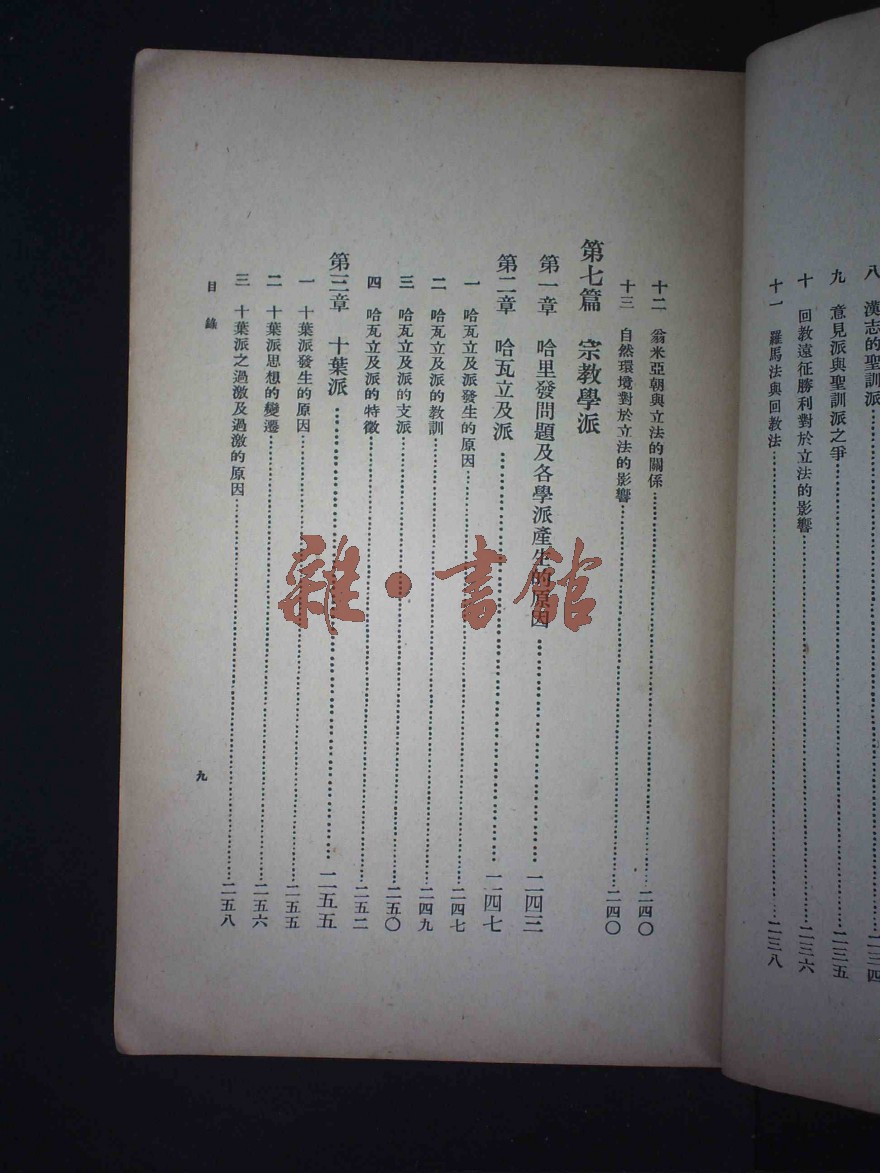 八　漢志的聖訓派……二三四
九　意見派與聖訓派之爭……二三五
十　回教遠征勝利對於立法的影響……二三六
十一　羅馬法與回教法……二三八
十二　翁米亞朝與立法的關係……二四〇
十三　自然環境對於立法的影響……二四〇
第七篇　宗教學派
第一章　哈里發問題及各學派產生的原因……二四三
第二章　哈瓦立及派……二四七
一　哈瓦立及派發生的原因……二四七
二　哈瓦立及派的教訓……二四九
三　哈瓦立及派的支派……二五〇
四　哈瓦立及派的特徵……二五二
第三章　十葉派……二五五
一　十葉派發生的原因……二五五
二　十葉派思想的變遷……二五六
三　十葉派之過激及過激的原因……二五八
目錄
九
雜·書館